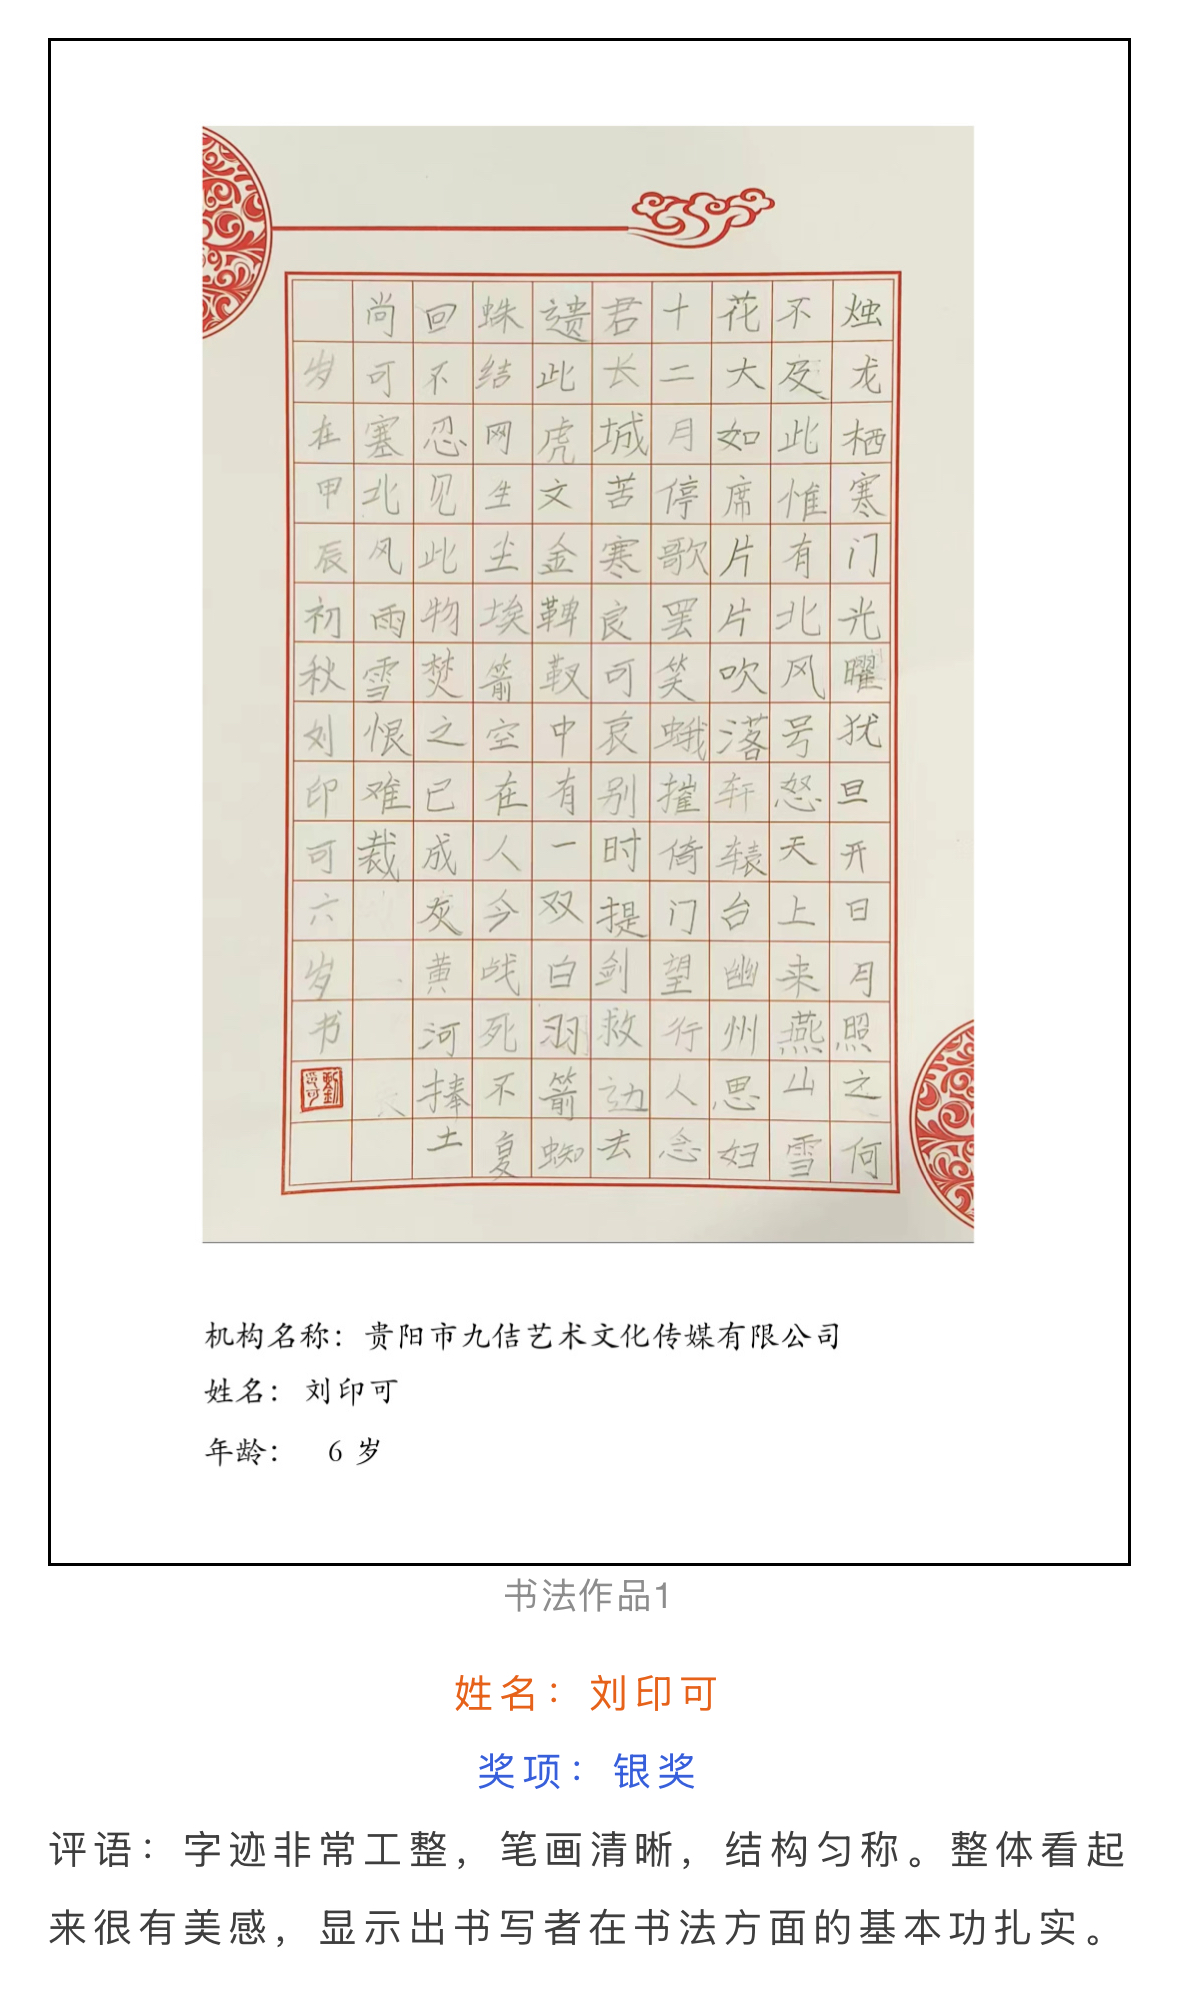 烛龙栖寒门光曜犹旦开日月照之何
不及此惟有北风号怒天上来燕山雪
花大如席片片吹落轩辕台幽州思妇
十二月停歌罢笑蛾摧倚门望行人念
君长城苦寒良可哀别时提剑救边去
遗此虎文金鞞靫中有一双白羽箭蜘
蛛结网生尘埃箭空在人今战死不复
回不忍见此物焚之已成灰黄河捧土
尚可塞北风雨雪恨难裁
岁在甲辰初秋刘印可六岁书
劉印可
机构名称：贵阳市九佶艺术文化传媒有限公司
姓名：刘印可
年龄：6 岁
书法作品1
姓名：刘印可
奖项：银奖
评语：字迹非常工整，笔画清晰，结构匀称。整体看起
来很有美感，显示出书写者在书法方面的基本功扎实。